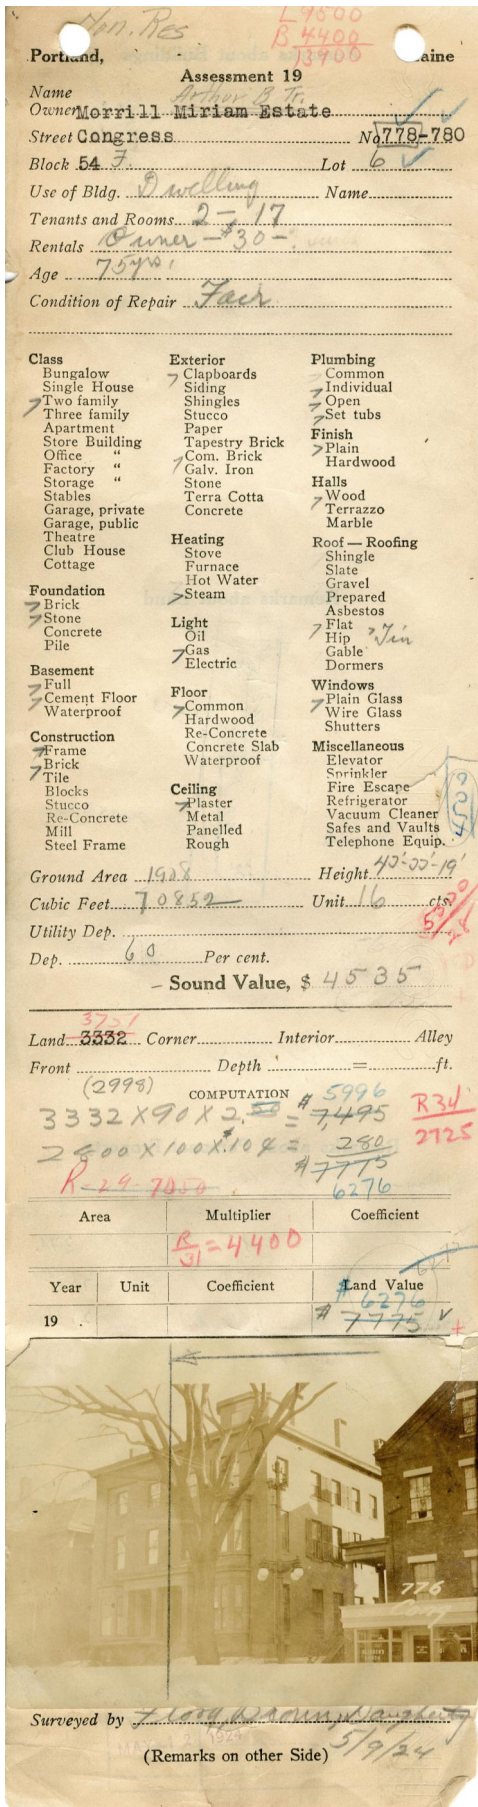 Non. Res
L 9500
B 4400
13900
Portland, Maine
Assessment 19
Name Arthur B Tr.
Owner Morrill Miriam Estate
Street Congress No 778-780
Block 54 F. Lot 6
Use of Bldg. Dwelling Name
Tenants and Rooms 2 - 17
Rentals Owner - $30 -
Age 75 yrs.
Condition of Repair Fair
Class
Bungalow
Single House
Two family
Three family
Apartment
Store Building
Office "
Factory "
Storage "
Stables
Garage, private
Garage, public
Theatre
Club House
Cottage
Foundation
Brick
Stone
Concrete
Pile
Basement
Full
Cement Floor
Waterproof
Construction
Frame
Brick
Tile
Blocks
Stucco
Re-Concrete
Mill
Steel Frame
Exterior
Clapboards
Siding
Shingles
Stucco
Paper
Tapestry Brick
Com. Brick
Galv. Iron
Stone
Terra Cotta
Concrete
Heating
Stove
Furnace
Hot Water
Steam
Light
Oil
Gas
Electric
Floor
Common
Hardwood
Re-Concrete
Concrete Slab
Waterproof
Ceiling
Plaster
Metal
Panelled
Rough
Plumbing
Common
Individual
Open
Set tubs
Finish
Plain
Hardwood
Halls
Wood
Terrazzo
Marble
Roof — Roofing
Shingle
Slate
Gravel
Prepared
Asbestos
Flat
Hip Tin
Gable
Dormers
Windows
Plain Glass
Wire Glass
Shutters
Miscellaneous
Elevator
Sprinkler
Fire Escape
Refrigerator
Vacuum Cleaner
Safes and Vaults
Telephone Equip.
Ground Area 1908 Height
Cubic Feet 70852 Unit 16 cts.
Utility Dep.
Dep. 60 Per cent.
- Sound Value, $ 4535
3751
Land 3332 Corner Interior Alley
Front Depth = ft.
(2998) COMPUTATION $ 5996
3332 X 90 X 2.50 = 7,495
R34
2725
2800 X 100 X .104 = 280
$ 7775
R-29-7050 6276
Area Multiplier Coefficient
R/31 = 4400
Year Unit Coefficient Land Value
$ 6276
19 $ 7775
776
Cong
Surveyed by
5/9/24
(Remarks on other Side)